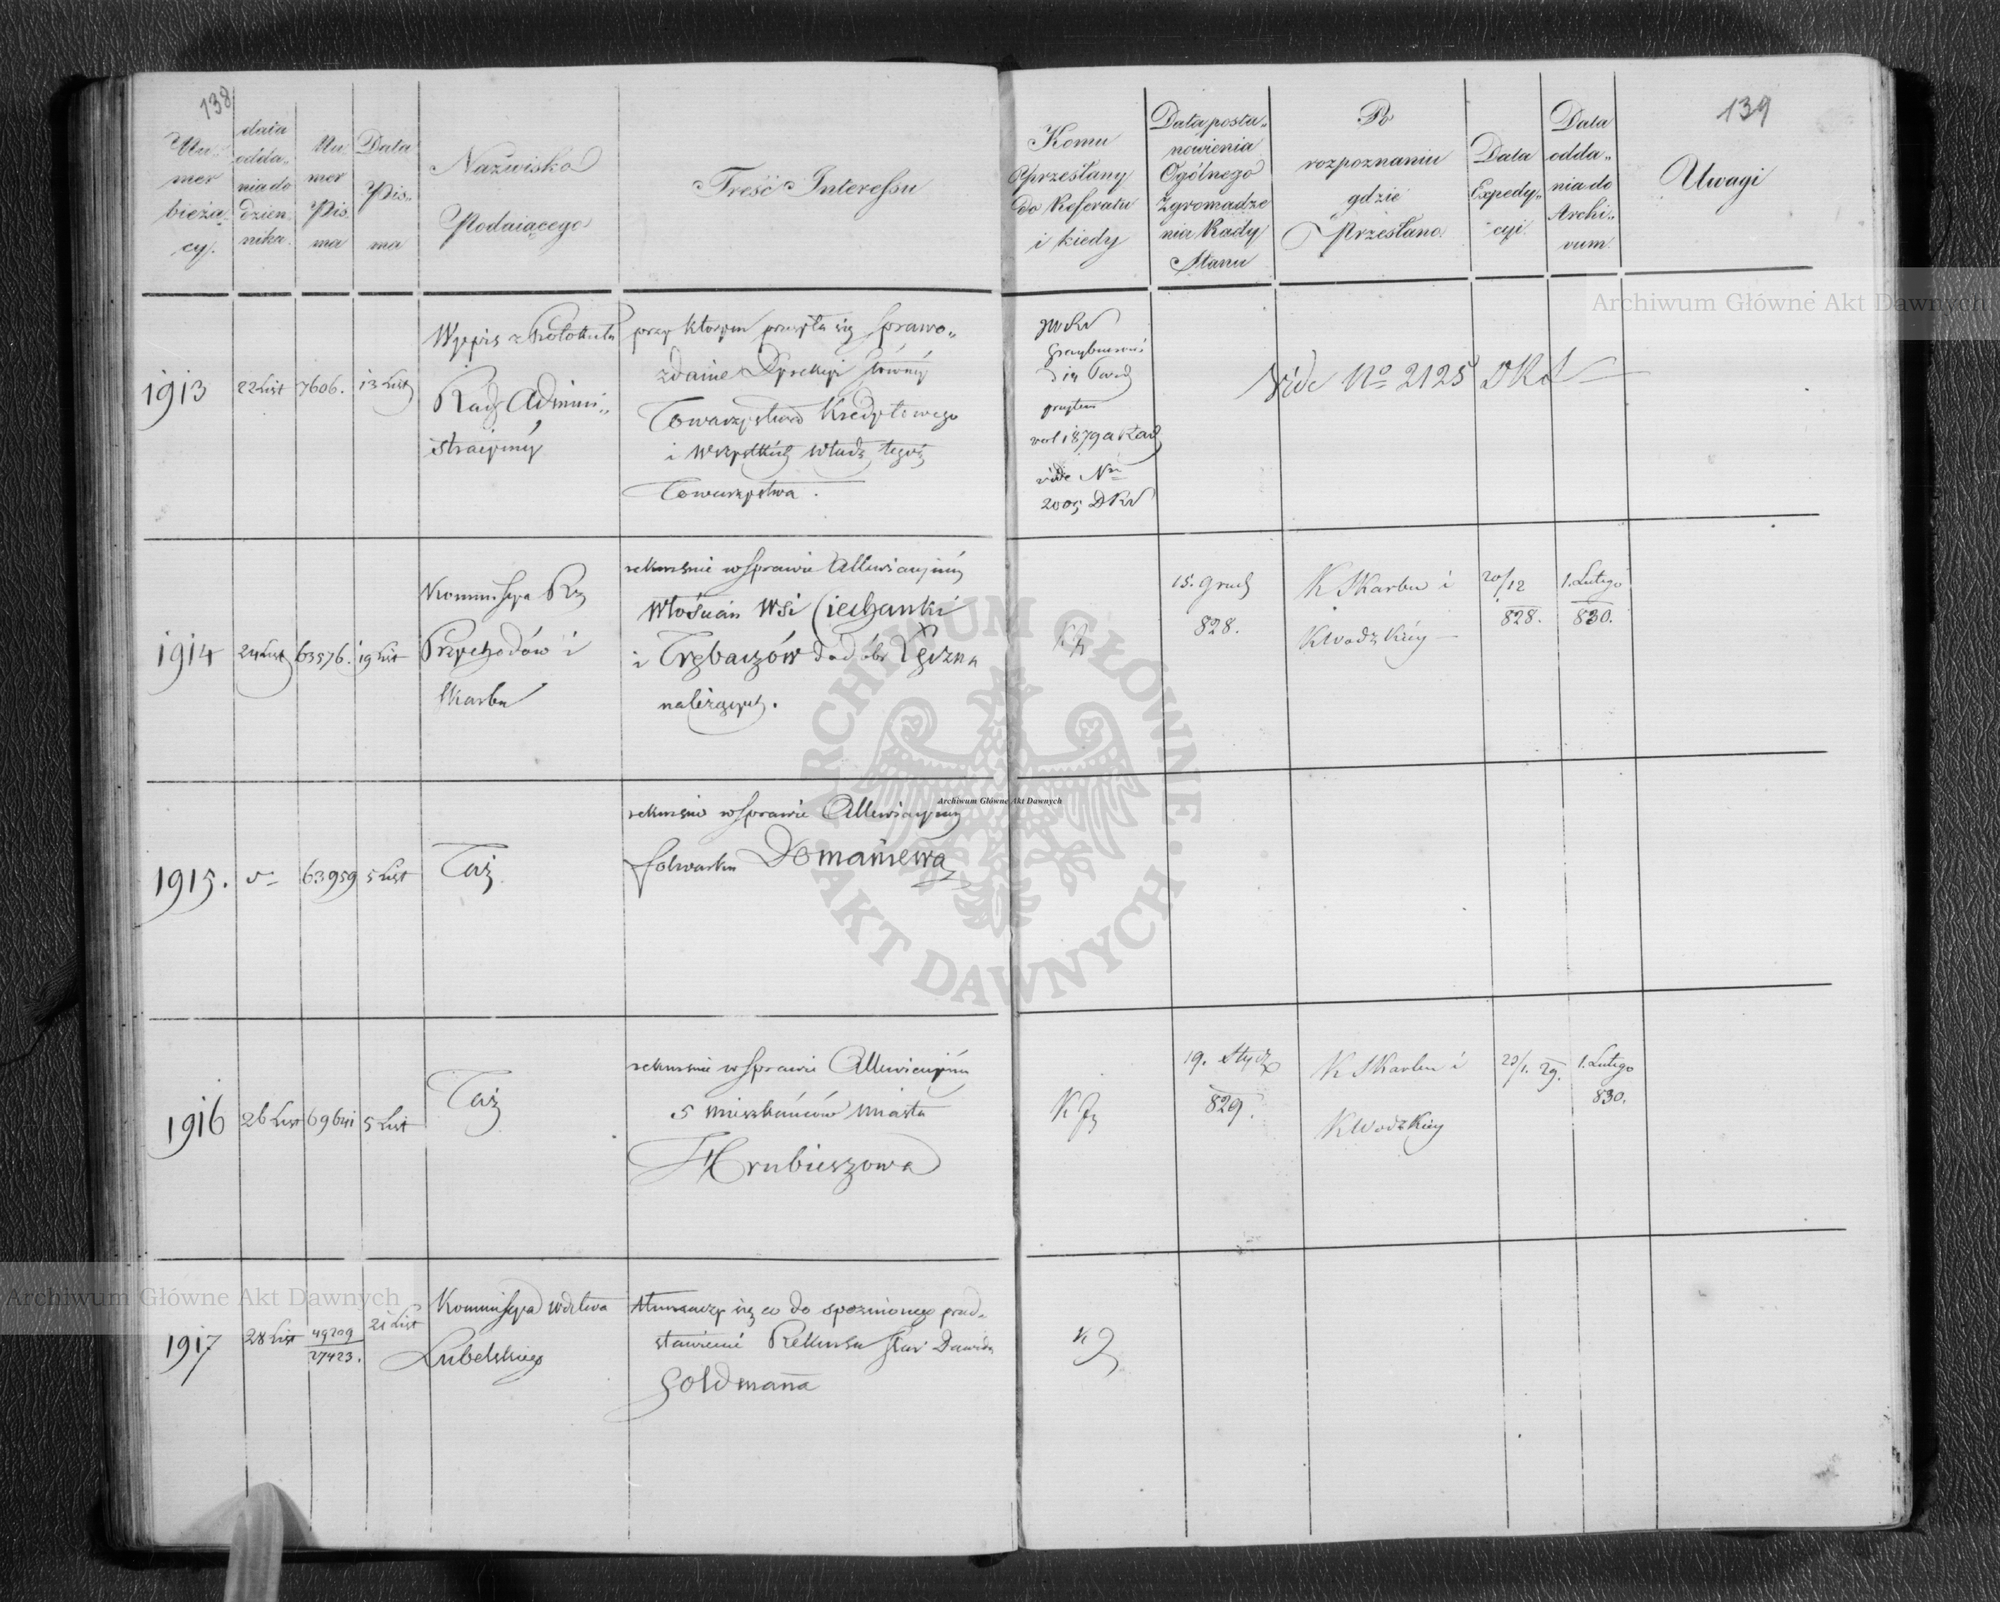 138
Nu-
mer
bieżą-
cy.
data
odda-
nia do
dzien-
nika
Nu-
mer
Pis-
ma
Data
Pis-
ma
Nazwisko
Podaiącego
Treść Interessu
Komu
przesłany
do Referatu
i kiedy
Data posta-
nowienia
Ogólnego
Zgromadze
nia Rady
Stanu
Po
rozpoznaniu
gdzie
Przesłano
Data
Expedy-
cyi
Data
odda-
nia do
Archi-
vum
139
Uwagi
1913
22 List
7606.
13 List
Wypis z Protokułu
Rady Admini-
stracyiney
przy którym przesyła się sprawo-
zdanie Dyrekcyi Główney
Towarzystwa Kredytowego
i wszystkich władz tegoż
Towarzystwa.
vide No
2005 DRS
Vide No 2125 DRS
1914
24 List
63576.
19 List
Kommissya Rz
Przychodów i
Skarbu
rekursie w sprawie Allewiacyiney
Włościan wsi Ciechanki
i Trębaczów do dóbr Łęczna
należących.
15. Grud
828.
K Skarbu i
KWodzkiey
20/12
828.
1. Lutego
830.
1915.
63959
5 List
Taż
rekursie w sprawie Allewiacyiney
folwarku Domaniewa
1916
26 List
69641
5 List
Taż
rekursie w sprawie Allewiacyiney
5 mieszkańców miasta
Hrubieszowa
19. Stycz
829.
K Skarbu i
KWodzkiey
1. Lutego
830.
1917
28 List
49209
27423.
21 List
Kommissya Wdztwa
Lubelskiego
tłumaczy się co do spoznionego przed-
stawienia Rekursu Star Dawida
Goldmana
Archiwum Główne Akt Dawnych
Archiwum Główne Akt Dawnych
Archiwum Główne Akt Dawnych
ARCHIWUM GŁÓWNE AKT DAWNYCH